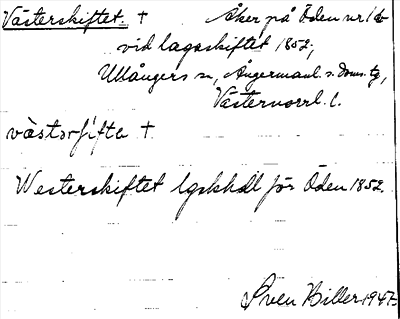 Västerskiftet † Åker på Öden nr 1 b
vid lagaskiftet 1852,
Ullångers sn, Ångermanl. s. doms. tg,
Västernorrl. l.
†
Westerskiftet lgskhdl för Öden 1852.
Sven Biller 1947